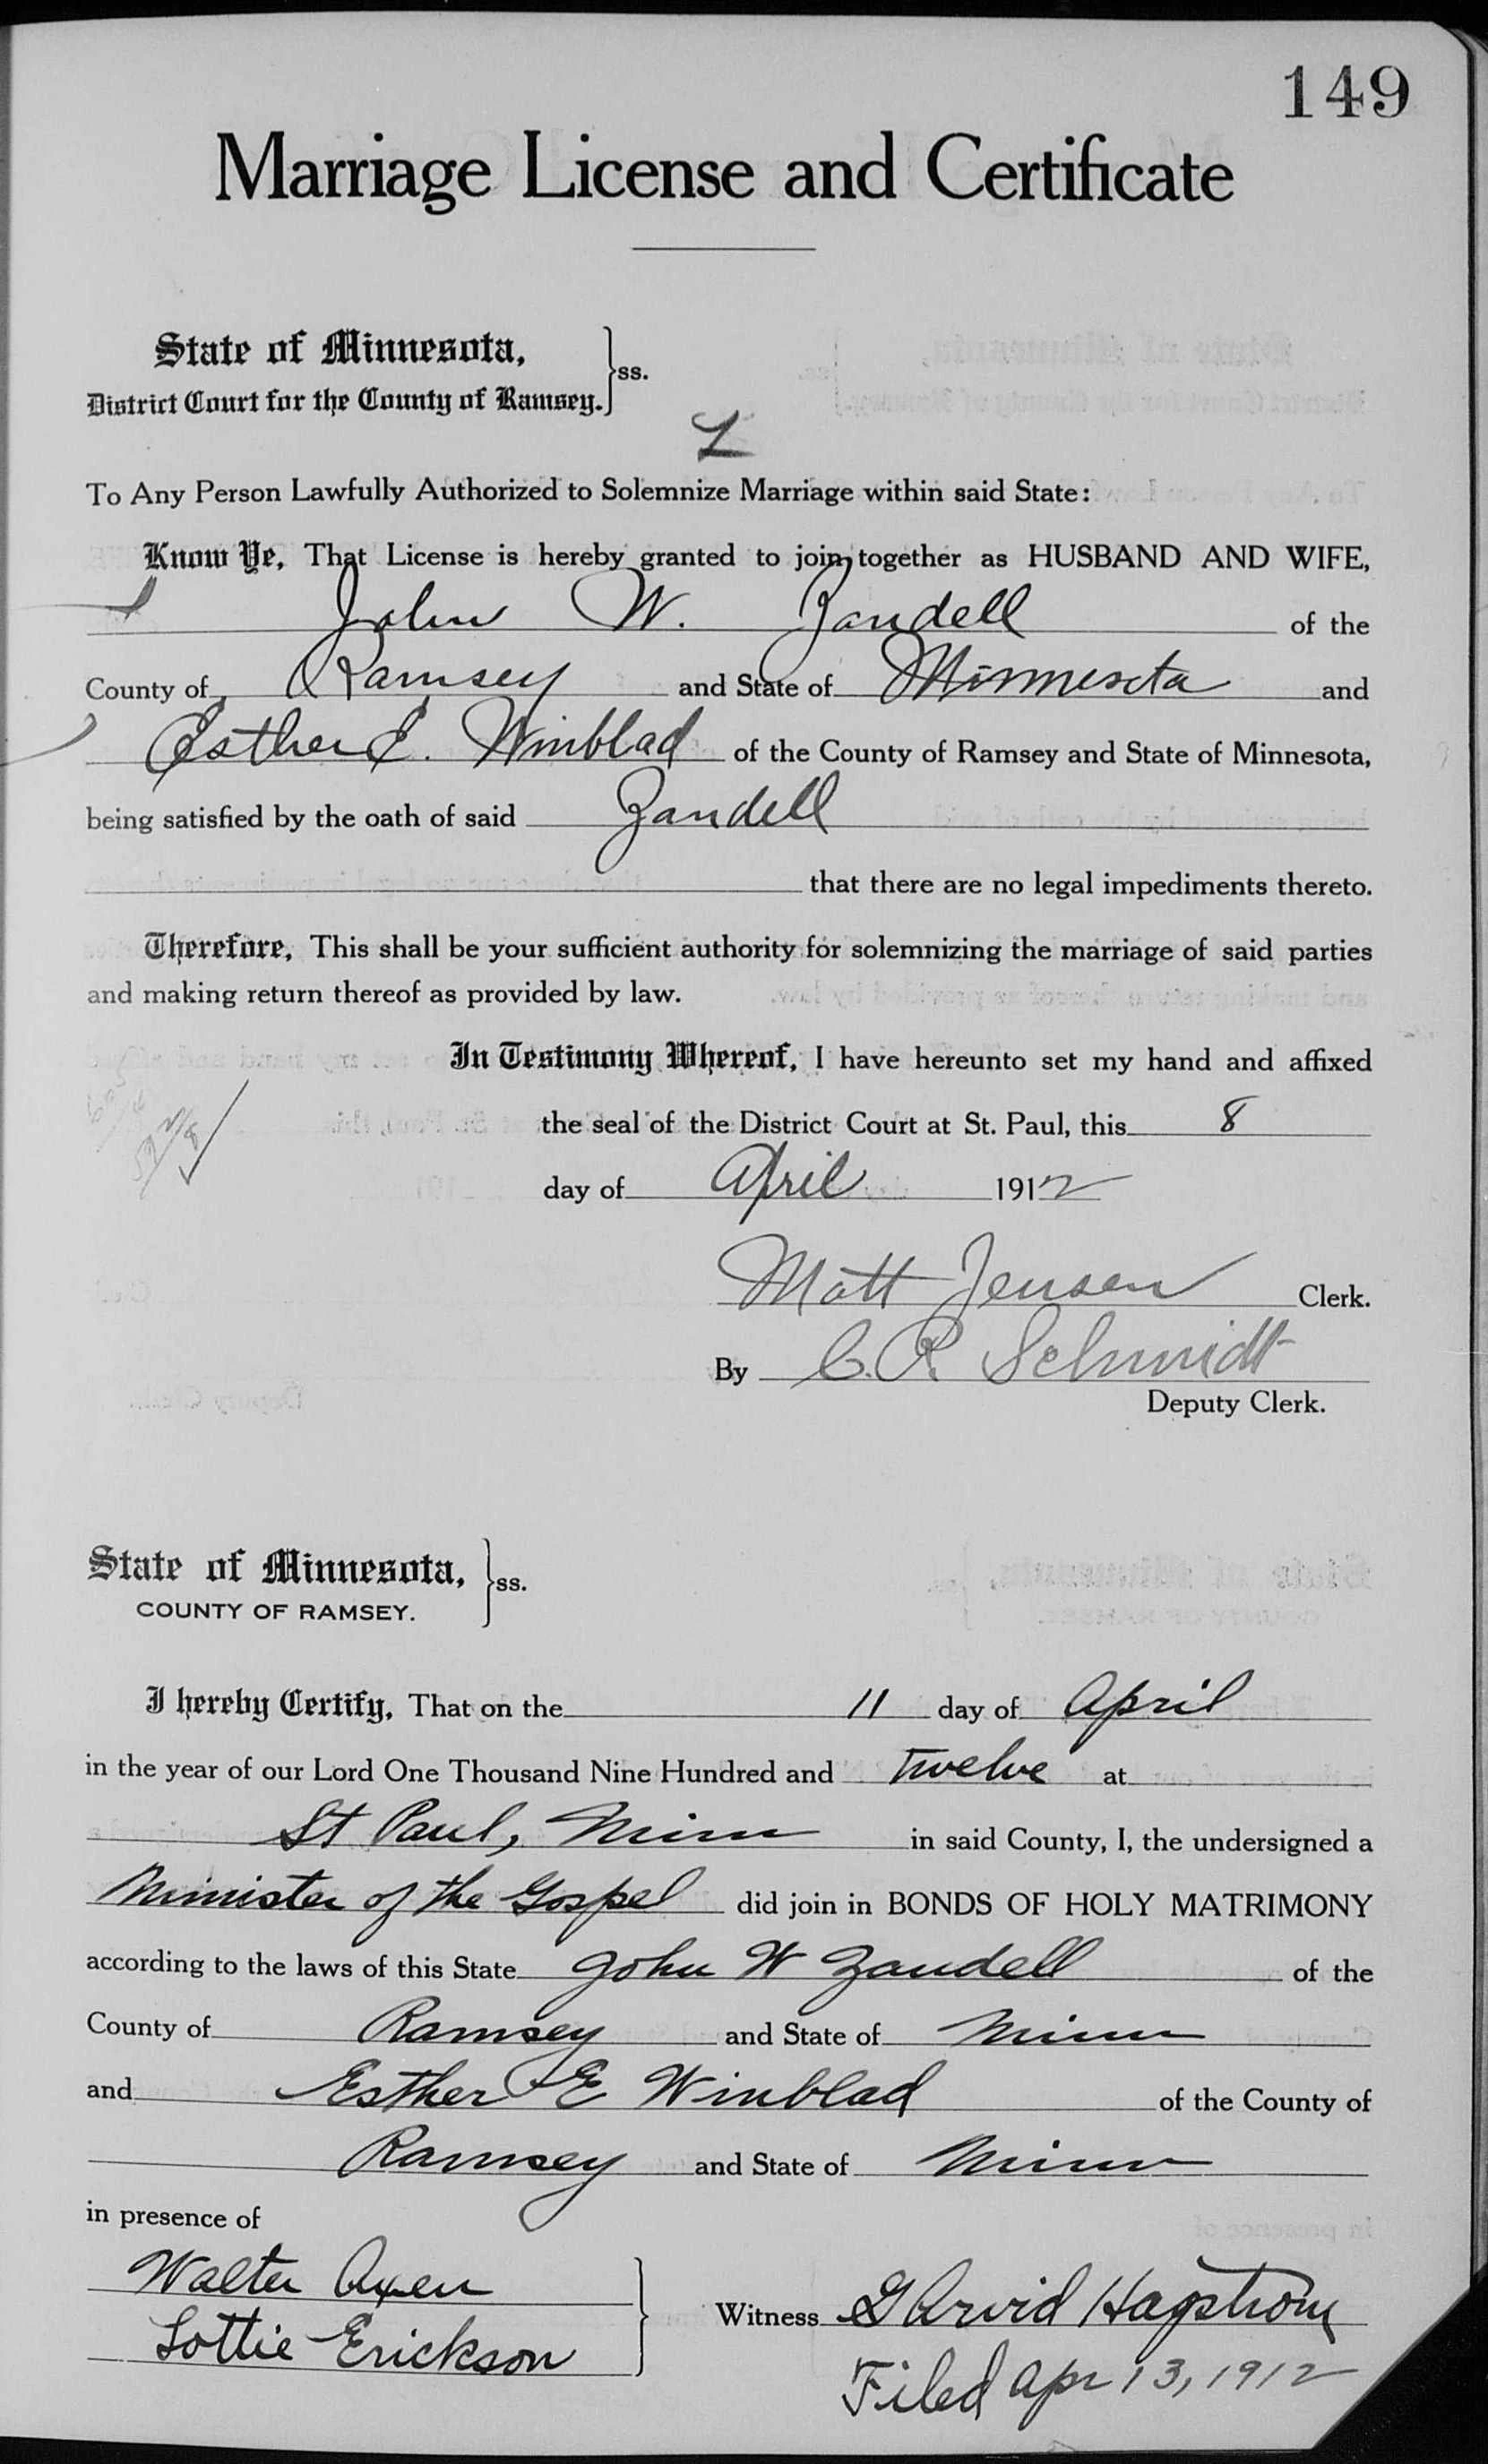 149
Marriage License and Certificate
State of Minnesota, } ss.
District Court for the County of Ramsey.
To Any Person Lawfully Authorized to Solemnize Marriage within said State:
Know Ye, That License is hereby granted to join together as HUSBAND AND WIFE,
John W. Zandell of the
County of Ramsey and State of Minnesota and
Esther E. Winblad of the County of Ramsey and State of Minnesota,
being satisfied by the oath of said Zandell
that there are no legal impediments thereto.
Therefore, This shall be your sufficient authority for solemnizing the marriage of said parties
and making return thereof as provided by law.
In Testimony Whereof, I have hereunto set my hand and affixed
the seal of the District Court at St. Paul, this 8
day of April 1912
Matt Jensen Clerk.
By C. R. Schmidt
Deputy Clerk.
State of Minnesota, } ss.
COUNTY OF RAMSEY.
I hereby Certify, That on the 11 day of April
in the year of our Lord One Thousand Nine Hundred and Twelve at
St Paul, Minn in said County, I, the undersigned a
Minister of the Gospel did join in BONDS OF HOLY MATRIMONY
according to the laws of this State John W Zandell of the
County of Ramsey and State of Minn
and Esther E Winblad of the County of
Ramsey and State of Minn
in presence of
Walter Axen
Lottie Erickson
Witness G Arvid Hagstrom
Filed Apr 13, 1912